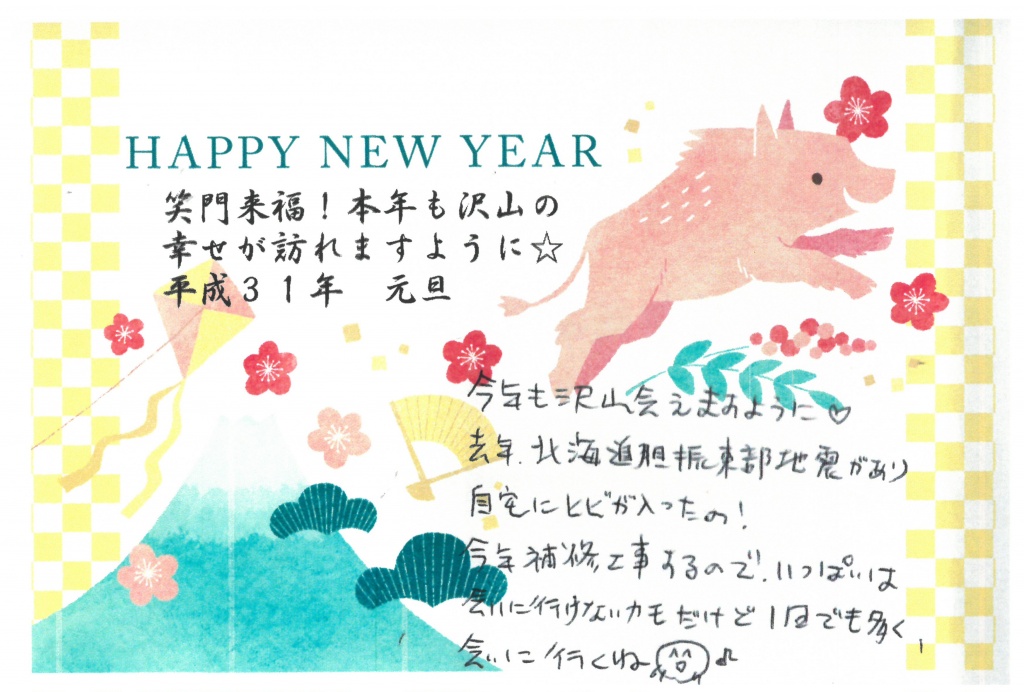 HAPPY NEW YEAR
笑門来福！本年も沢山の
幸せが訪れますように☆
平成３１年　元旦
今年も沢山会えますように♡
去年、北海道胆振東部地震があり
自宅にヒビが入ったの！
今年補修工事するので、いっぱいは
会いに行けないカモだけど1回でも多く
会いに行くね♪